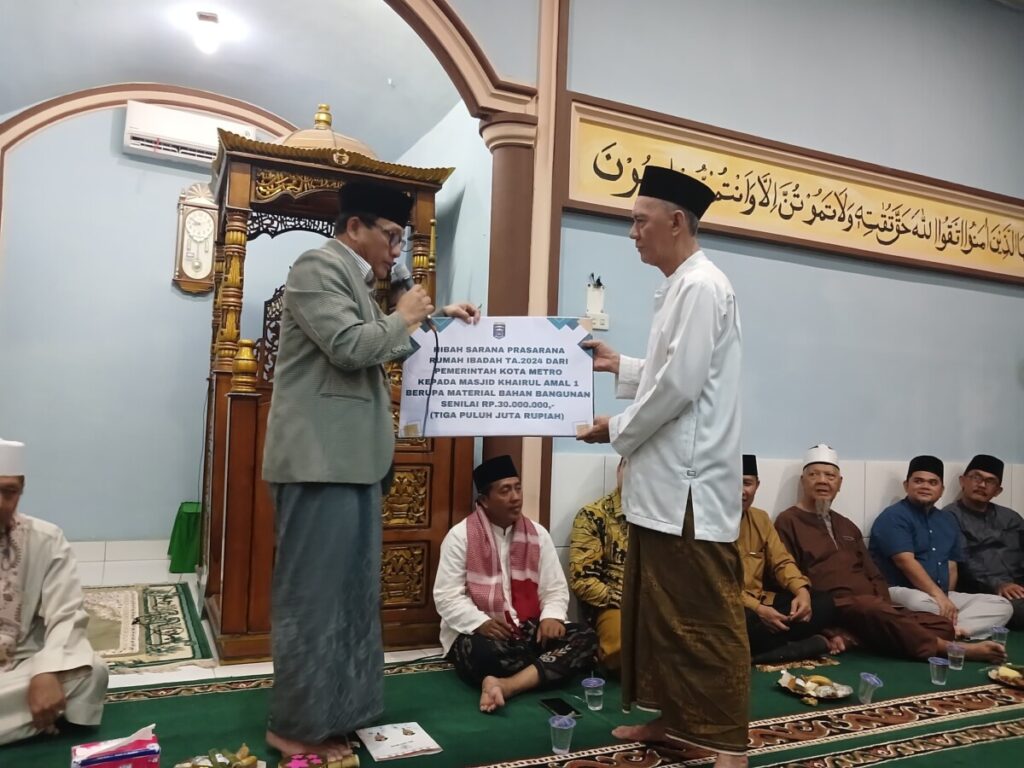 الَّذِيْنَ اٰمَنُوا اتَّقُوا اللّٰهَ حَقَّ تُقٰىتِهٖ وَلَا تَمُوْتُنَّ اِلَّا وَاَنْتُمْ مُّسْلِمُوْنَ
HIBAH SARANA PRASARANA
RUMAH IBADAH TA.2024 DARI
PEMERINTAH KOTA METRO
KEPADA MASJID KHAIRUL AMAL 1
BERUPA MATERIAL BAHAN BANGUNAN
SENILAI RP.30.000.000,-
(TIGA PULUH JUTA RUPIAH)